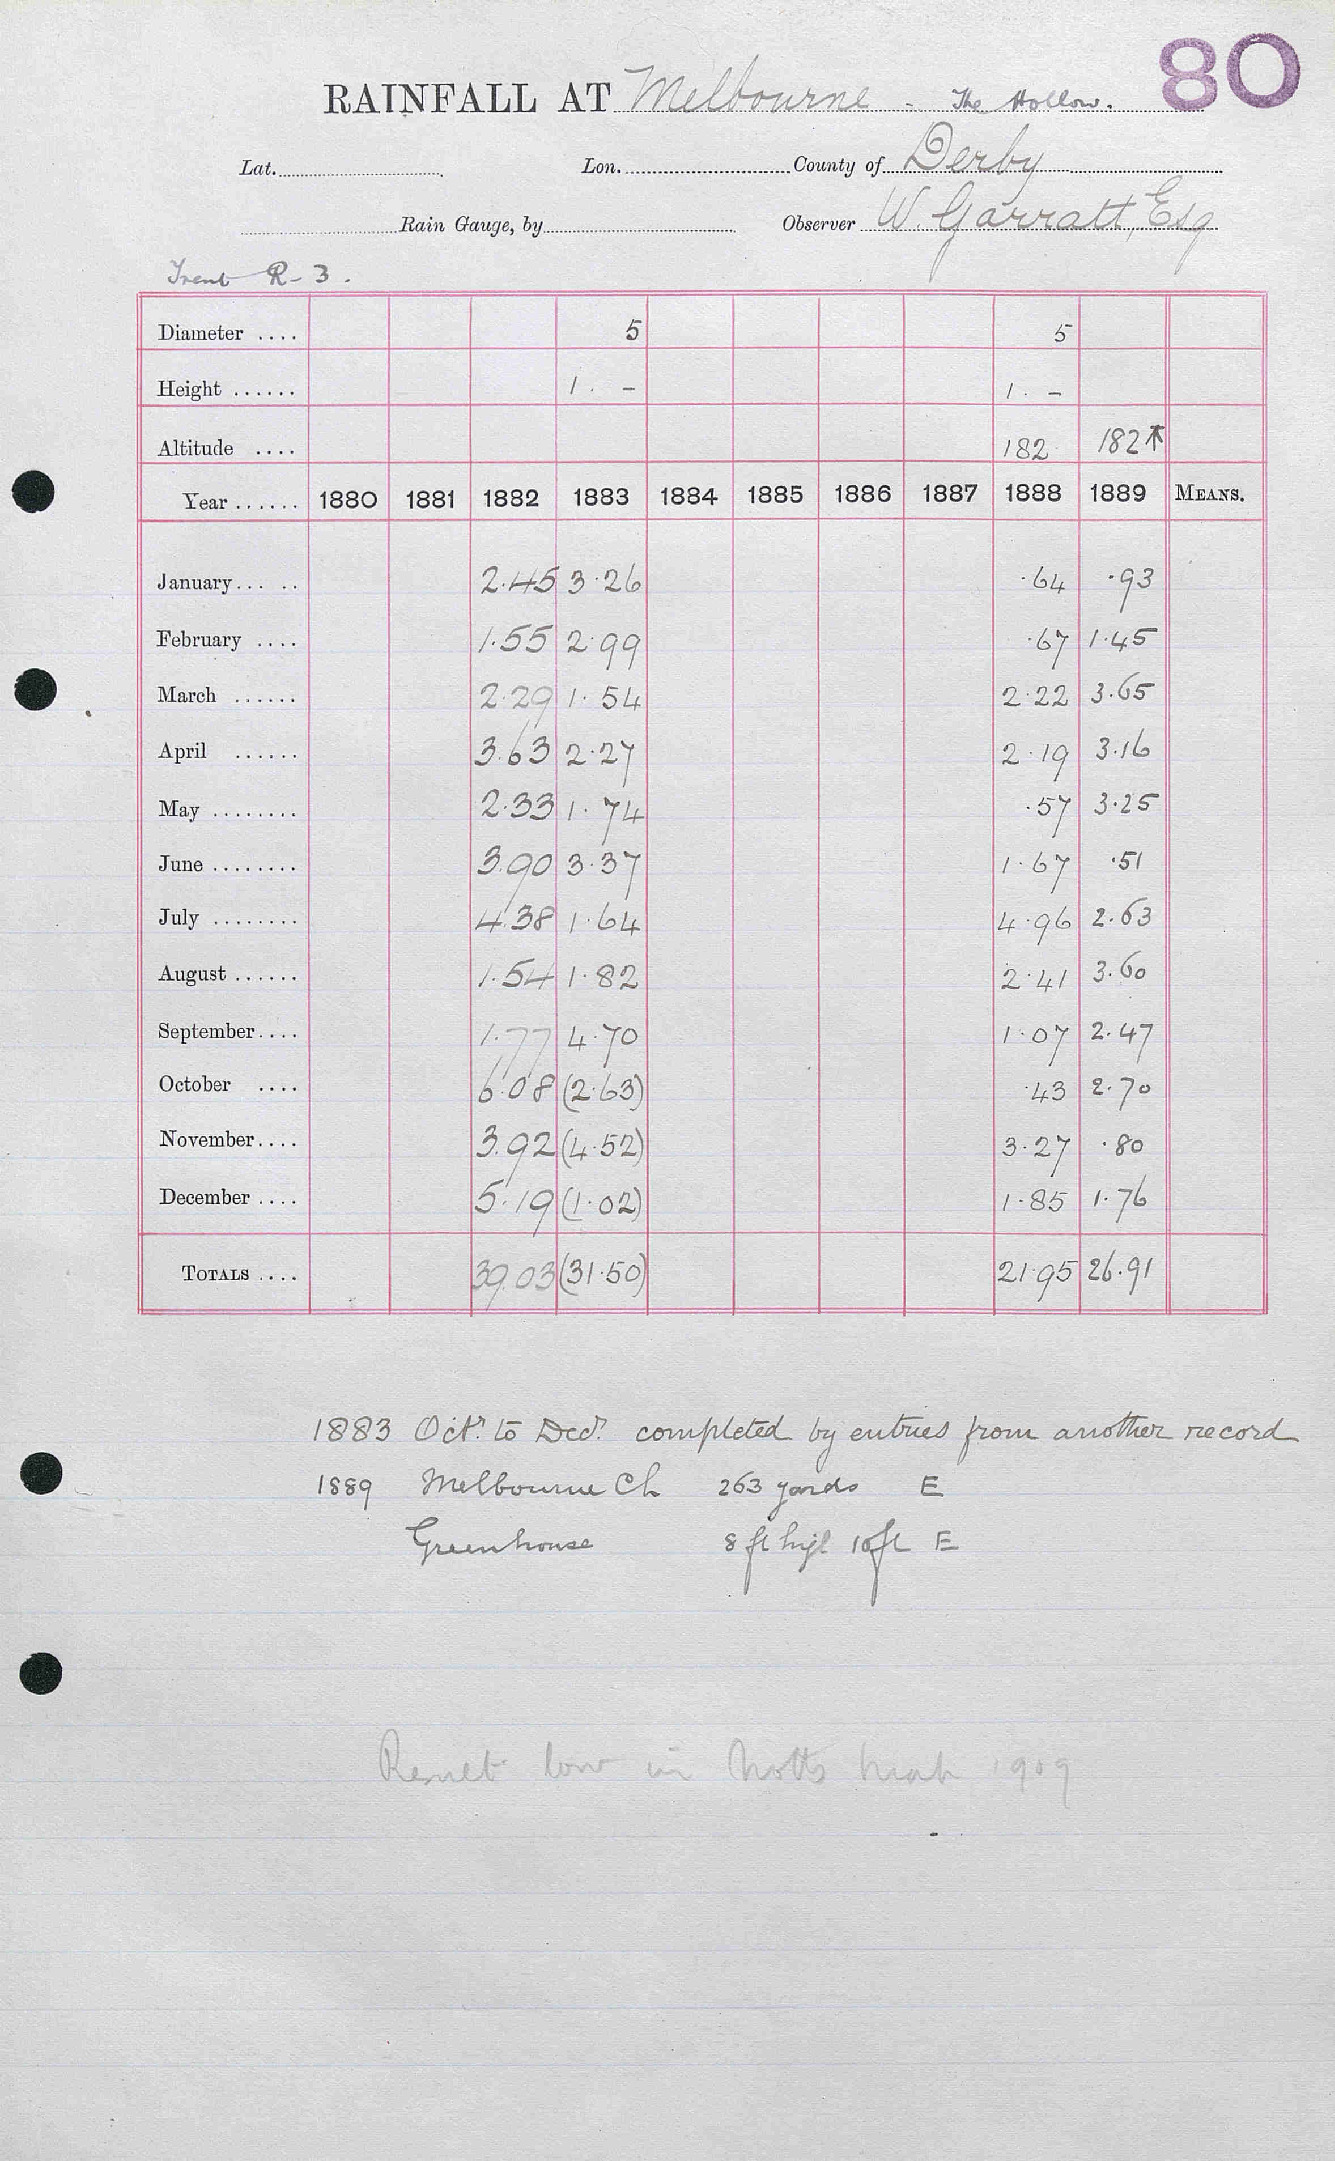 80
RAINFALL AT Melbourne - The Hollow.
Lat. Lon. County of Derby
Rain Gauge, by Observer W. Garratt, Esq
Trent R-3.
Diameter .... 5 5
Height ...... 1. - 1. -
Altitude .... 182 182
Year ...... 1880 1881 1882 1883 1884 1885 1886 1887 1888 1889 MEANS.
January... .. 2.45 3.26 .64 .93
February .... 1.55 2.99 .67 1.45
March ...... 2.29 1.54 2.22 3.65
April ...... 3.63 2.27 2.19 3.16
May ........ 2.33 1.74 .57 3.25
June ........ 3.90 3.37 1.67 .51
July ........ 4.38 1.64 4.96 2.63
August ...... 1.54 1.82 2.41 3.60
September .... 1.77 4.70 1.07 2.47
October .... 6.08 (2.63) .43 2.70
November .... 3.92 (4.52) 3.27 .80
December .... 5.19 (1.02) 1.85 1.76
TOTALS .... 39.03 (31.50) 21.95 26.91
1883 Octr. to Decr. completed by entries from another record
1889 Melbourne Ch 263 yards E
Greenhouse 8 ft high 10ft E
low in Notts 1909